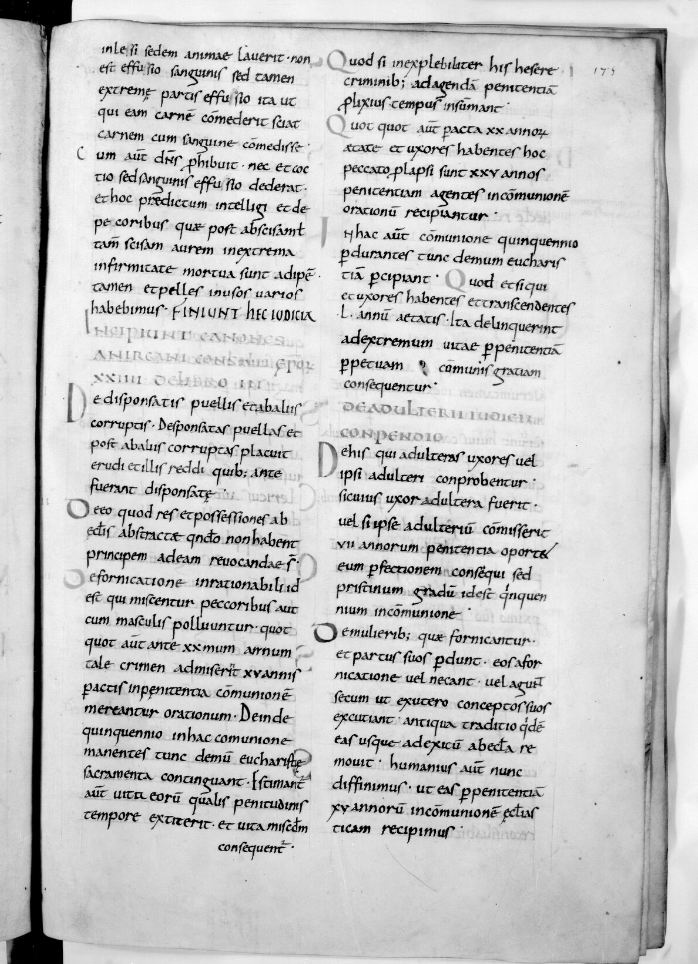 inlesi sedem animae lauerit · non
est effusio sanguinis sed tamen
extremę partis effusio ita ut
qui eam carnē cōmederit sciat
carnem cum sanguine cōmedisse ·
Cum aūt dn̄s ꝓhibuit · nec et coc
tio sed sanguinis effusio dederat ·
et hoc prędictum intelligi et de
pecoribus quæ post abscisam
tam̄ scisam aurem in extrema
infirmitate mortua sunt adipē ·
tamen et pelles in usos varios
habebimus · FINIUNT HEC IUDICIA
INCIPIUNT CANONES
ANKIRANI EPOR
XXIIII DE LIBRO III
De disponsatis puellis et ab aliis
corruptis · Desponsatas puellas et
post ab aliis corruptas placuit
erudi et illis reddi quib; ante
fuerant disponsatę
De eo quod res et possessiones ab
ecl̄is abstractæ qn̄do non habent
principem ad eam reuocandae s̄ ·
De fornicatione inrationabili id
est qui miscentur peccoribus aut
cum masculis polluuntur · quot
quot aūt ante xx mum annum
tale crimen admiserīt xv annis
pactis in penitentia cōmunionē
mereantur orationum · Deinde
quinquennio in hac comunione
manentes tunc demū eucharistię
sacramenta continguant · Estimant̄
aūt vita eorū qualis penitudinis
tempore extiterit · et ita miscdm̄
consequent̄ ·
Quod si inexplebiliter his hesere
criminib; ad agendā penitentiā
ꝓlixius tempus insūmant ·
Quot quot aūt pacta xx annoꝝ
ætate et uxores habentes hoc
peccato ꝓlapsi sunt xxv annos
penitentiam agentes in cōmunionē
orationū recipiantur ·
In hac aūt cōmunione quinquennio
ꝑdurantes tunc demum eucharis
tiā ꝑcipiant · Quod et si qui
et uxores habentes et transcendentes
· L · annū aetatis · Ita delinquerint
ad extremum uitae ꝑ penitentiā
ꝑpetuam comunis gratiam
consequentur ·
DE ADULTERII
CONPENDIO
De his qui adulteras uxores uel
ipsi adulteri conprobentur ·
si cuius uxor adultera fuerit ·
uel si ipse adulteriū cōmisserit
vii annorum penitentia oportet
eum ꝑfectionem consequi sed
pristinum gradū id est q̄nquen
nium in cōmunione ·
De mulierib; quæ fornicantur ·
et partus suos ꝑdunt · eos a for
nicatione uel necant · uel agunt̄
secum ut ex utero conceptos suos
excutiant · antiqua traditio q̄dē
eas usque ad exitū ab ecl̄a re
mouit · humanius aūt nunc
diffinimus · ut eas ꝑ penitentiā
xv annorū in cōmunionē ecl̄ias
ticam recipimus ·